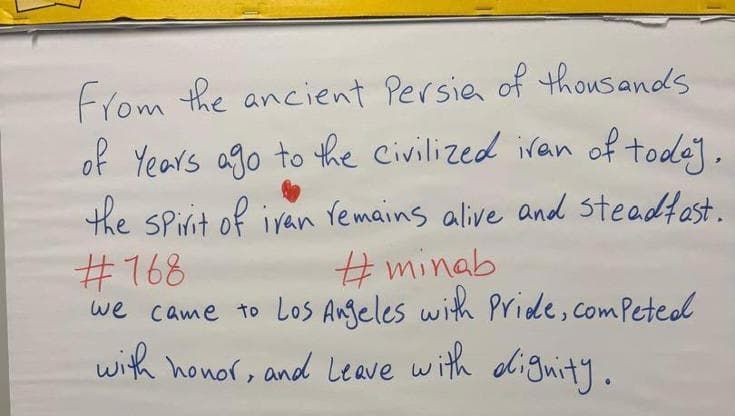 From the ancient Persia of thousands
of Years ago to the Civilized iran of today.
the spirit of iran remains alive and steadfast.
#168 #minab
we came to Los Angeles with Pride, competed
with honor, and Leave with dignity.